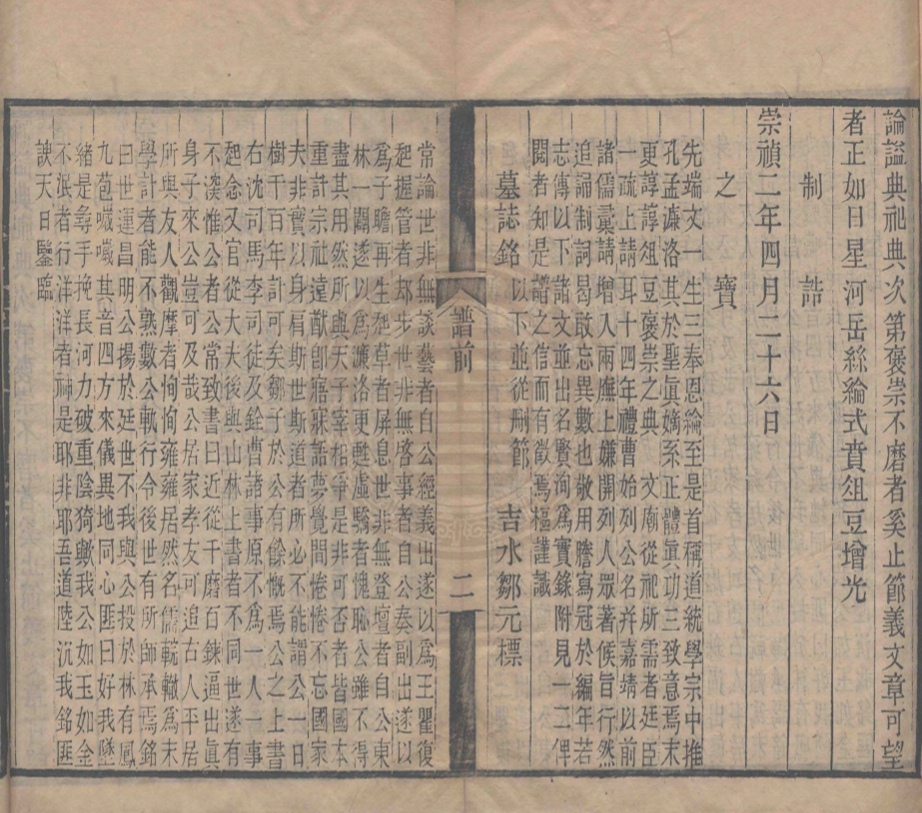 論謚典祀典次第褒崇不磨者奚止節義文章可望
者正如日星河岳絲綸式賁俎豆增光
制誥
崇禎二年四月二十六日
之寶
先端文一生三奉恩綸至是首稱道統學宗中推
孔孟濂洛其於聖眞嫡系正體眞功三致意焉末
更諄諄俎豆褒崇之典 文廟從祀所需者廷臣
一疏上請耳十四年禮曹始列公名幷嘉靖以前
諸儒彙請增入兩廡上嫌開列人眾著候旨行然
追歸制詞曷敢忘異數也敬用謄寫冠於編年若
志傳以下諸文並出名賢洵爲實錄附見一二俾
閱者知是譜之信而有徵焉樞謹識
墓誌銘 以下並從刪節 吉水鄒元標
譜前 二
常論世非無談藝者自公經義出遂以爲王瞿復
起握管者邯步世非無啓事者自公奏副出遂以
爲子瞻再生起草者屏息世非無登壇者自公東
林一闢遂以濂洛更甦虛驕者愧恥公雖不得
盡其用然所與天子宰相爭是非可否者皆國本
重計宗社遠猷卽寤寐話夢覺間惓惓不忘國家
夫非實以身肩斯世斯道者所必不能謂公一日
樹千百年計可矣鄒子於公有餘慨焉公之上書
右沈司馬李司徒及銓曹諸事原不爲一人一事
起念又官從大夫後與山林上書者不同世遂有
不溪惟公者公常致書曰近從千磨百鍊逼出眞
身子來公豈易及哉公居家孝友可追古人平居
所與友人觀摩者恂恂雍雍居然名儒輗轍爲末
學計者能不熟數公軌行令後世有所師承焉銘
曰世運昌明公揚於廷世不地我與公投於林有鳳
九苞噦噦其音四方來儀異地同心匪曰好我墜
緒是尋手挽長河力破重陰猗歟我公如玉如金
不泯者行洋洋者神是耶非耶吾道陸沉我銘匪
諛天日鑒臨